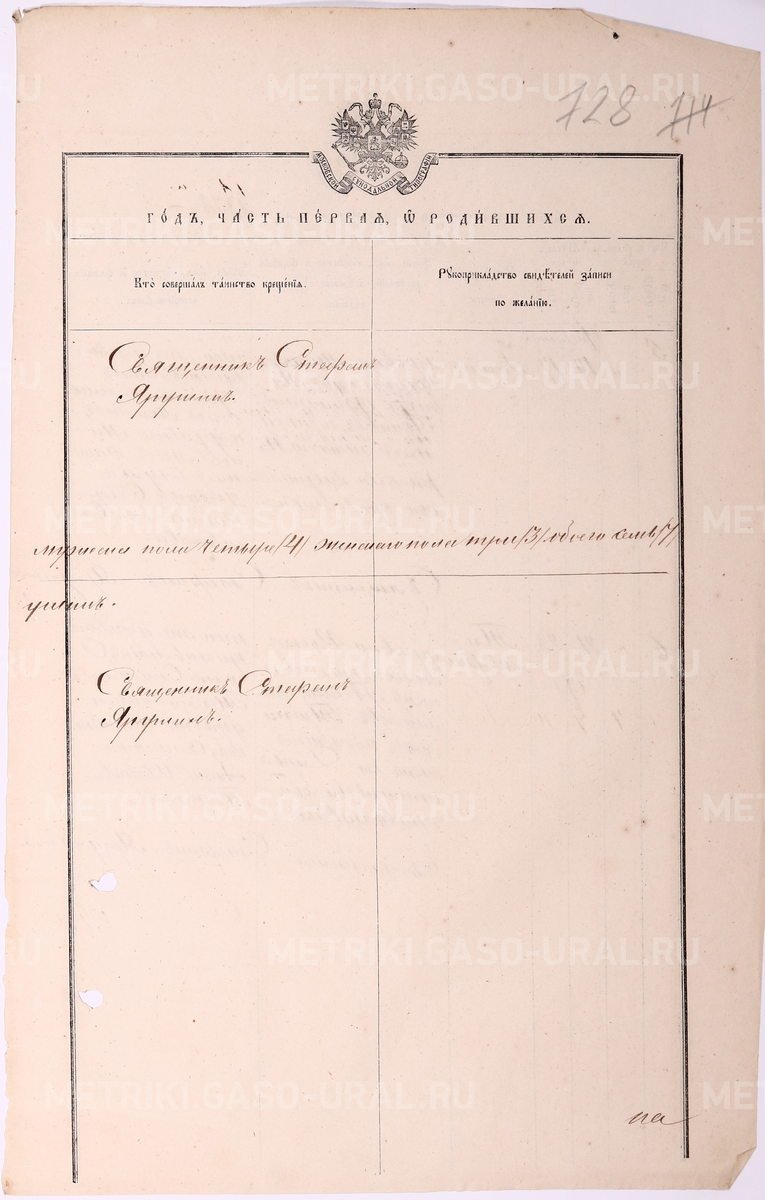 728 744
МОСКОВСКОЙ СУНОДАЛЬНОЙ ТИПОГРАФІИ
ГО́ДЪ, ЧА́СТЬ ПЕ́РВАЯ, Ѡ РОДИ́ВШИХСЯ.
Кто̀ соверша́лъ та́инство креще́нїѧ.
Рꙋкоприкла́дство свидѣ́телей за́писи
по жела́нїю.
Священникъ Стефанъ
Ярушинъ.
мужеска пола четыре /4/ женскаго пола три /3/ обоего семь /7/
Священникъ Стефанъ
Ярушинъ.
на
METRIKI.GASO-URAL.RU